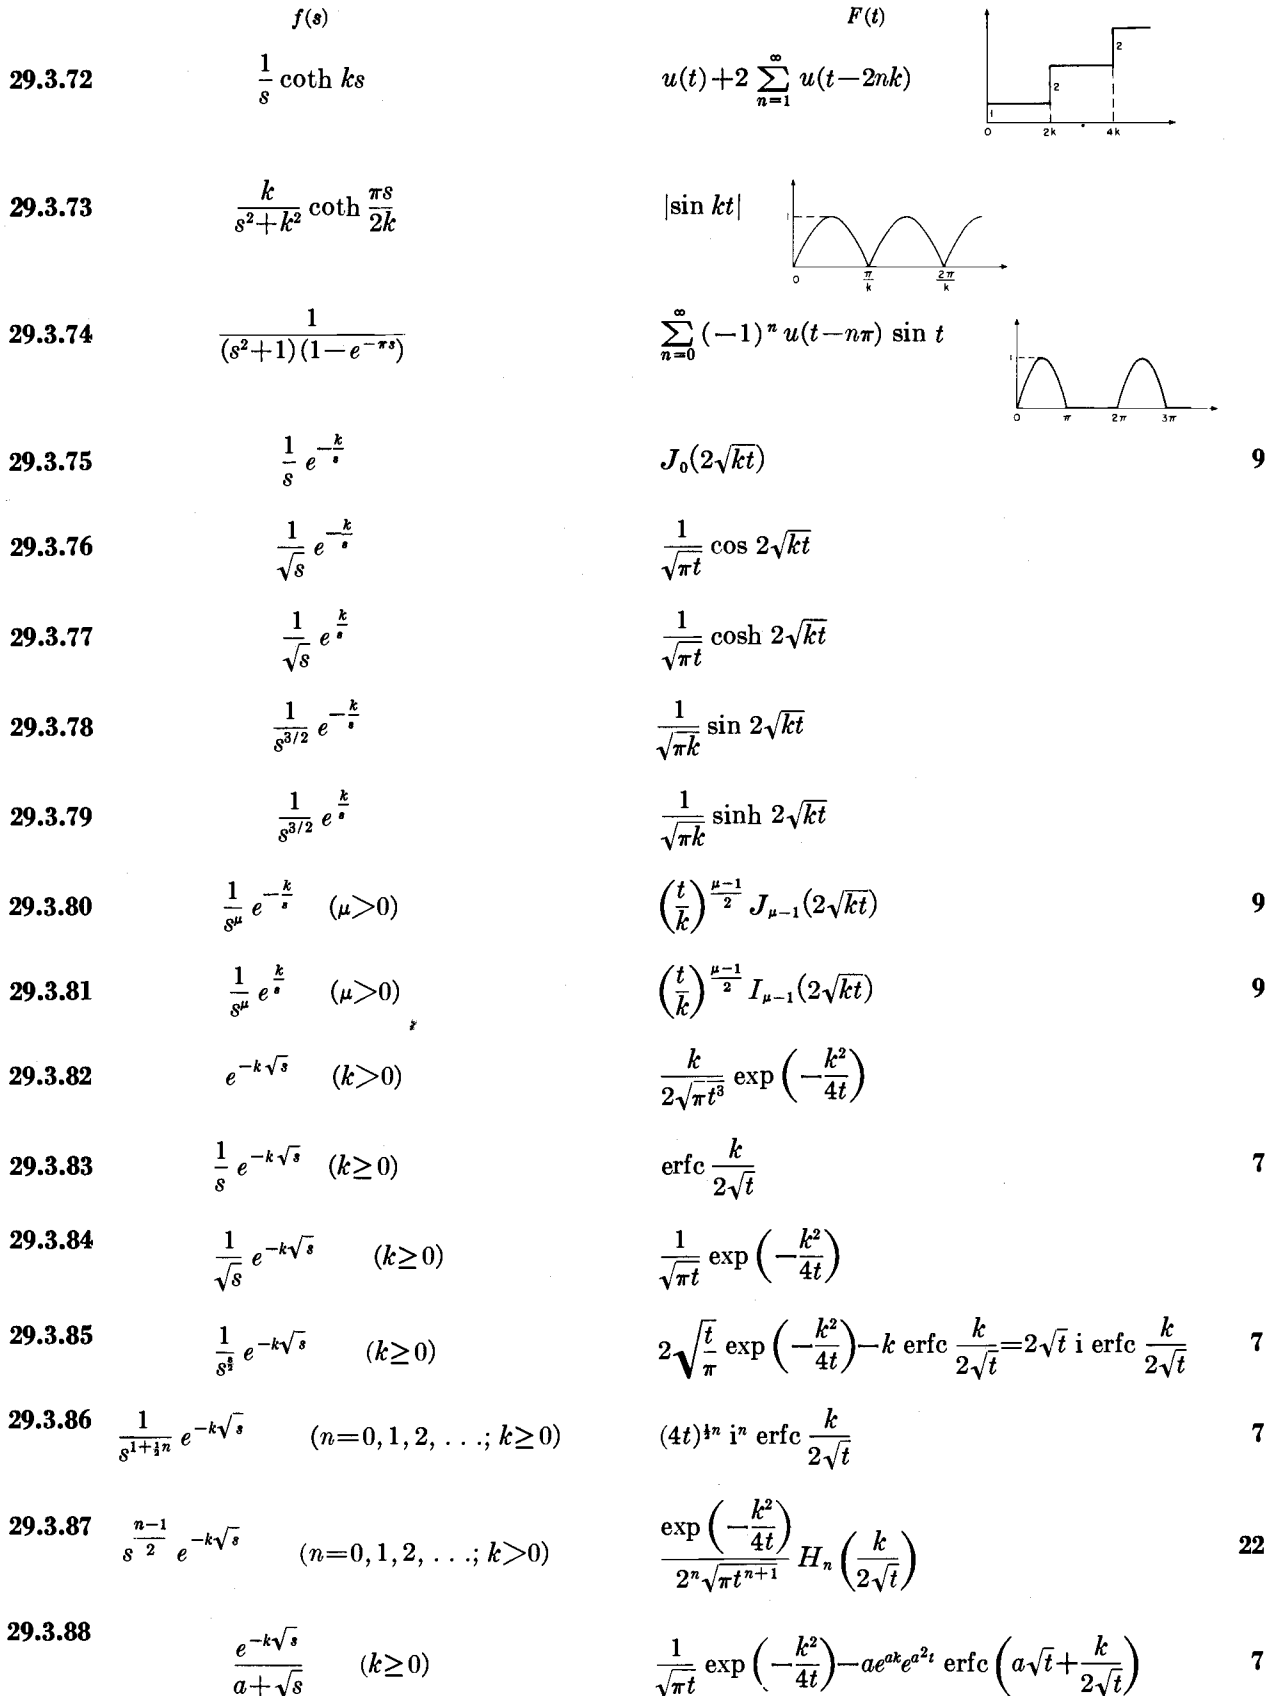 f(s) F(t)
29.3.72 1/s coth ks u(t)+2 ∑_{n=1}^{∞} u(t−2nk) 1 2 2 0 2k 4k
29.3.73 k/(s²+k²) coth πs/2k |sin kt| 1 0 π/k 2π/k
29.3.74 1/((s²+1)(1−e^{−πs})) ∑_{n=0}^{∞} (−1)^n u(t−nπ) sin t 1 0 π 2π 3π
29.3.75 1/s e^{−k/s} J₀(2√(kt)) 9
29.3.76 1/√s e^{−k/s} 1/√(πt) cos 2√(kt)
29.3.77 1/√s e^{k/s} 1/√(πt) cosh 2√(kt)
29.3.78 1/s^{3/2} e^{−k/s} 1/√(πk) sin 2√(kt)
29.3.79 1/s^{3/2} e^{k/s} 1/√(πk) sinh 2√(kt)
29.3.80 1/s^μ e^{−k/s} (μ>0) (t/k)^{(μ−1)/2} J_{μ−1}(2√(kt)) 9
29.3.81 1/s^μ e^{k/s} (μ>0) (t/k)^{(μ−1)/2} I_{μ−1}(2√(kt)) 9
29.3.82 e^{−k√s} (k>0) k/(2√(πt³)) exp (−k²/4t)
29.3.83 1/s e^{−k√s} (k≥0) erfc k/(2√t) 7
29.3.84 1/√s e^{−k√s} (k≥0) 1/√(πt) exp (−k²/4t)
29.3.85 1/s^{3/2} e^{−k√s} (k≥0) 2√(t/π) exp (−k²/4t)−k erfc k/(2√t)=2√t i erfc k/(2√t) 7
29.3.86 1/s^{1+½n} e^{−k√s} (n=0, 1, 2, . . .; k≥0) (4t)^{½n} iⁿ erfc k/(2√t) 7
29.3.87 s^{(n−1)/2} e^{−k√s} (n=0, 1, 2, . . .; k>0) exp (−k²/4t)/(2ⁿ√(πt^{n+1})) H_n (k/(2√t)) 22
29.3.88 e^{−k√s}/(a+√s) (k≥0) 1/√(πt) exp (−k²/4t)−ae^{ak}e^{a²t} erfc (a√t+k/(2√t)) 7